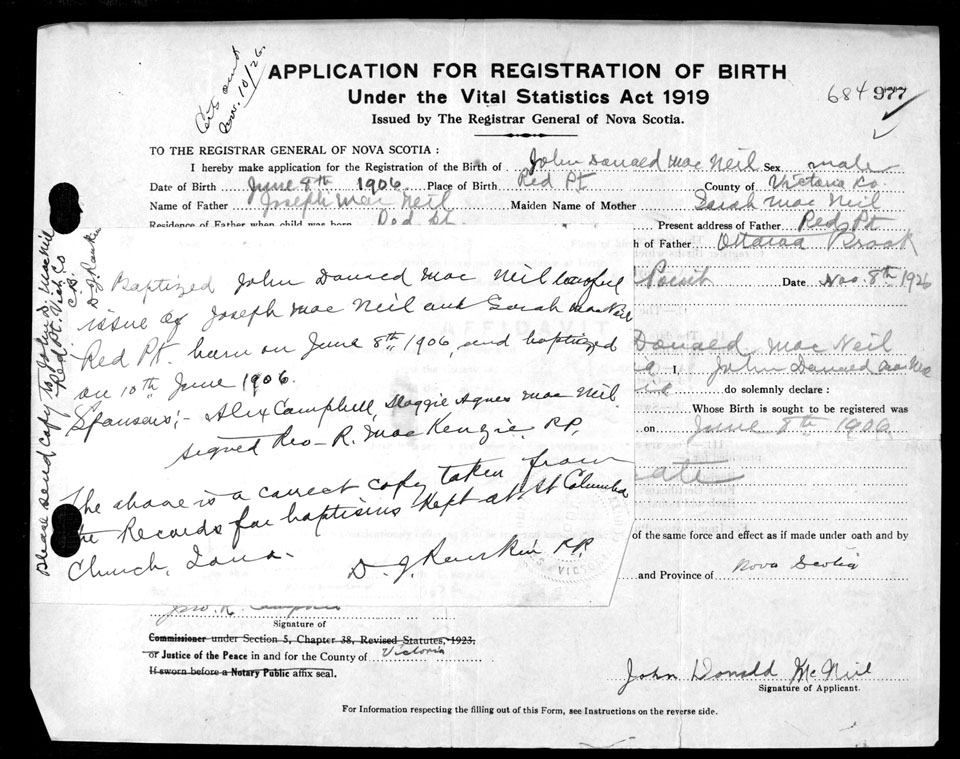 Cert. sent
Nov. 10/26.
APPLICATION FOR REGISTRATION OF BIRTH
Under the Vital Statistics Act 1919
Issued by The Registrar General of Nova Scotia.
684 977
TO THE REGISTRAR GENERAL OF NOVA SCOTIA :
I hereby make application for the Registration of the Birth of John Donald Mac Neil Sex male
Date of Birth June 8th 1906 Place of Birth Red Pt County of Victoria Co.
Name of Father Joseph Mac Neil Maiden Name of Mother Sarah Mac Neil
Residence of Father when child was born Red Pt. Present address of Father Red Pt
h of Father Ottawa Brook
Point Date Nov. 8th 1926
AFFIDAVIT
Donald Mac Neil
I, John Donald Mac Neil
do solemnly declare :
Whose Birth is sought to be registered was
on June 8th 1906
of the same force and effect as if made under oath and by
and Province of Nova Scotia
Please send copy to John D. MacNeil
Red Pt. Vict Co
C.B.
D J Rankin
Baptized John Donald Mac Neil lawful
issue of Joseph Mac Neil and Sarah MacNeil
Red Pt. born on June 8th 1906, and baptized
on 10th June 1906.
Sponsors:- Alex Campbell, Maggie Agnes Mac Neil
signed Rev- R. Mac Kenzie. P.P.
The above is a correct copy taken from
the Records for baptisms kept at St Columba
Church, Iona.
D. J. Rankin P.P.
Signature of
Commissioner under Section 5, Chapter 38, Revised Statutes, 1923.
or Justice of the Peace in and for the County of Victoria
If sworn before a Notary Public affix seal.
John Donald McNeil
Signature of Applicant.
For Information respecting the filling out of this Form, see Instructions on the reverse side.